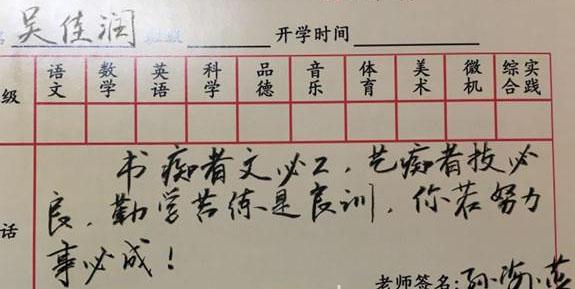 吴佳润 开学时间
级 语文 数学 英语 科学 品德 音乐 体育 美术 微机 综合实践
书痴者文必工，艺痴者技必
话 良，勤学苦练是良训，你若努力
事必成！
老师签名：孙海燕